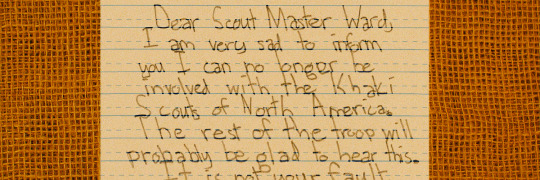 Dear Scout Master Ward,
I am very sad to inform
you I can no longer be
involved with the Khaki
Scouts of North America.
The rest of the troop will
probably be glad to hear this.
It is not your fault.